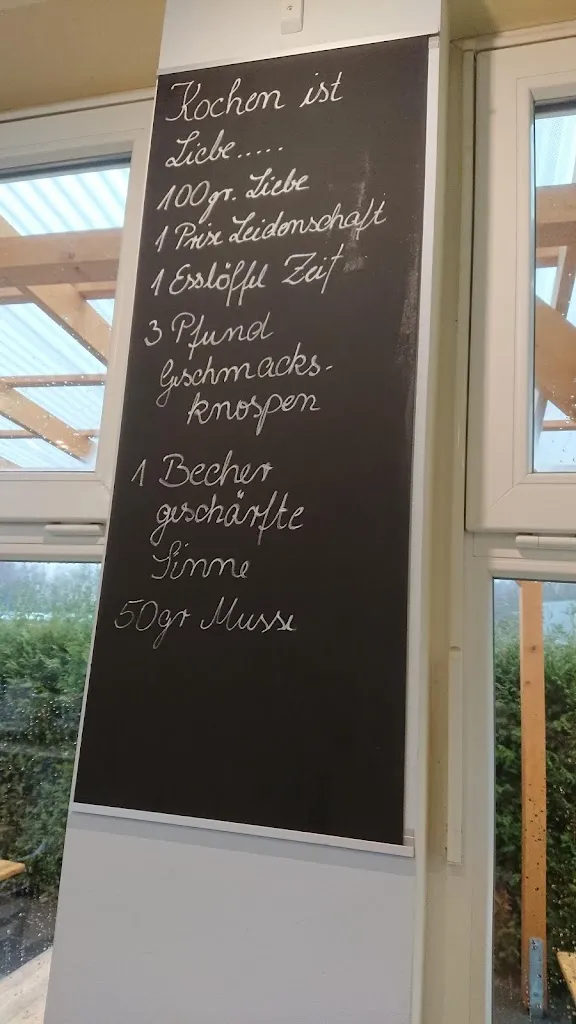 Kochen ist
Liebe.....
100gr. Liebe
1 Prise Leidenschaft
1 Esslöffel Zeit
3 Pfund
Geschmacks-
knospen
1 Becher
geschärfte
Sinne
50gr Musse